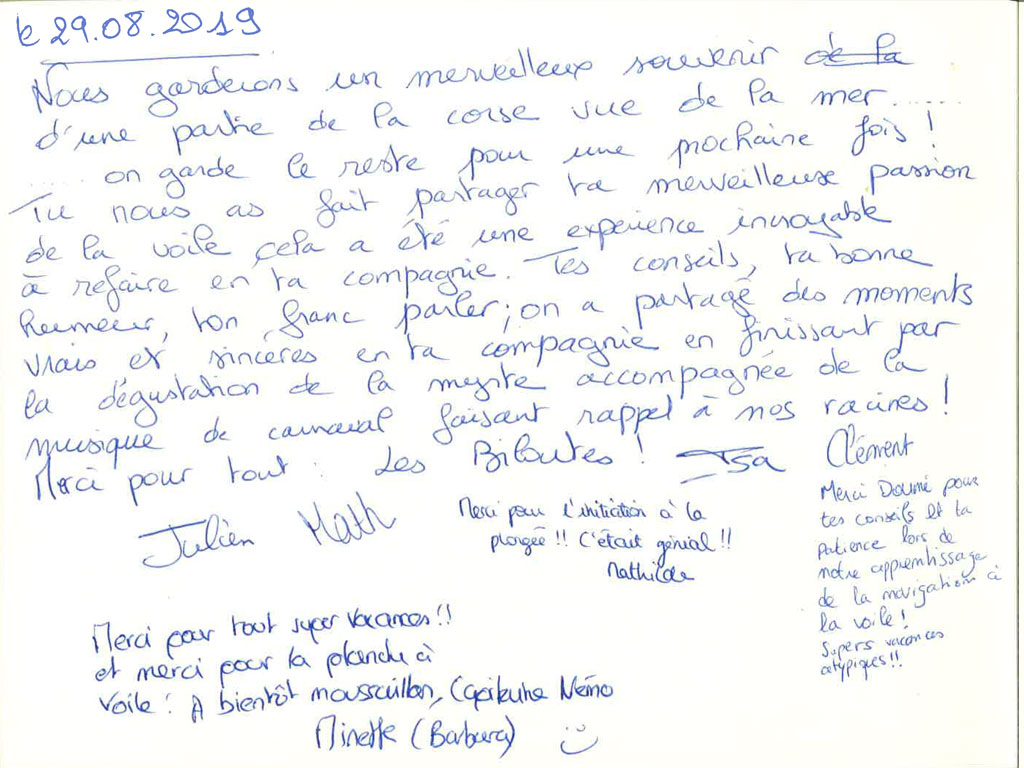 le 29.08.2019
Nous garderons un merveilleux souvenir de la
d'une partie de la corse vue de la mer......
..... on garde le reste pour une prochaine fois !
Tu nous as fait partager ta merveilleuse passion
de la voile çela a été une expérience incroyable
à refaire en ta compagnie. Tes conseils, ta bonne
humeur, ton franc parler ; on a partagé des moments
vrais et sincères en ta compagnie en finissant par
la dégustation de la myrte accompagnée de la
musique de carnaval faisant rappel à nos racines !
Merci pour tout : Les Biloutes ! Isa Clément
Julien Math
Merci pour l'initiation à la
plongée !! C'était génial !!
Mathilde
Merci Doumé pour
tes conseils et ta
patience lors de
notre apprentissage
de la navigation à
la voile !
Supers vacances
atypiques !!
Merci pour tout super vacances !!
et merci pour la planche à
voile ! A bientôt moussaillon, Capitaine Némo
Minette (Barbara)